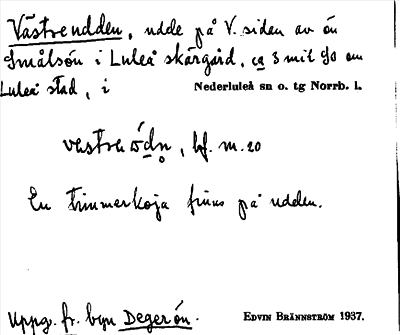 Västreudden, udde på V. siden av ön
Småsön i Luleå skärgård, ca 3 mil SO om
Luleå stad, i Nederluleå sn o. tg Norrb. l.
bf. m. 20
En timmerkoja finns på udden.
Uppg. fr. byn Degerön. EDVIN BRÄNNSTRÖM 1937.